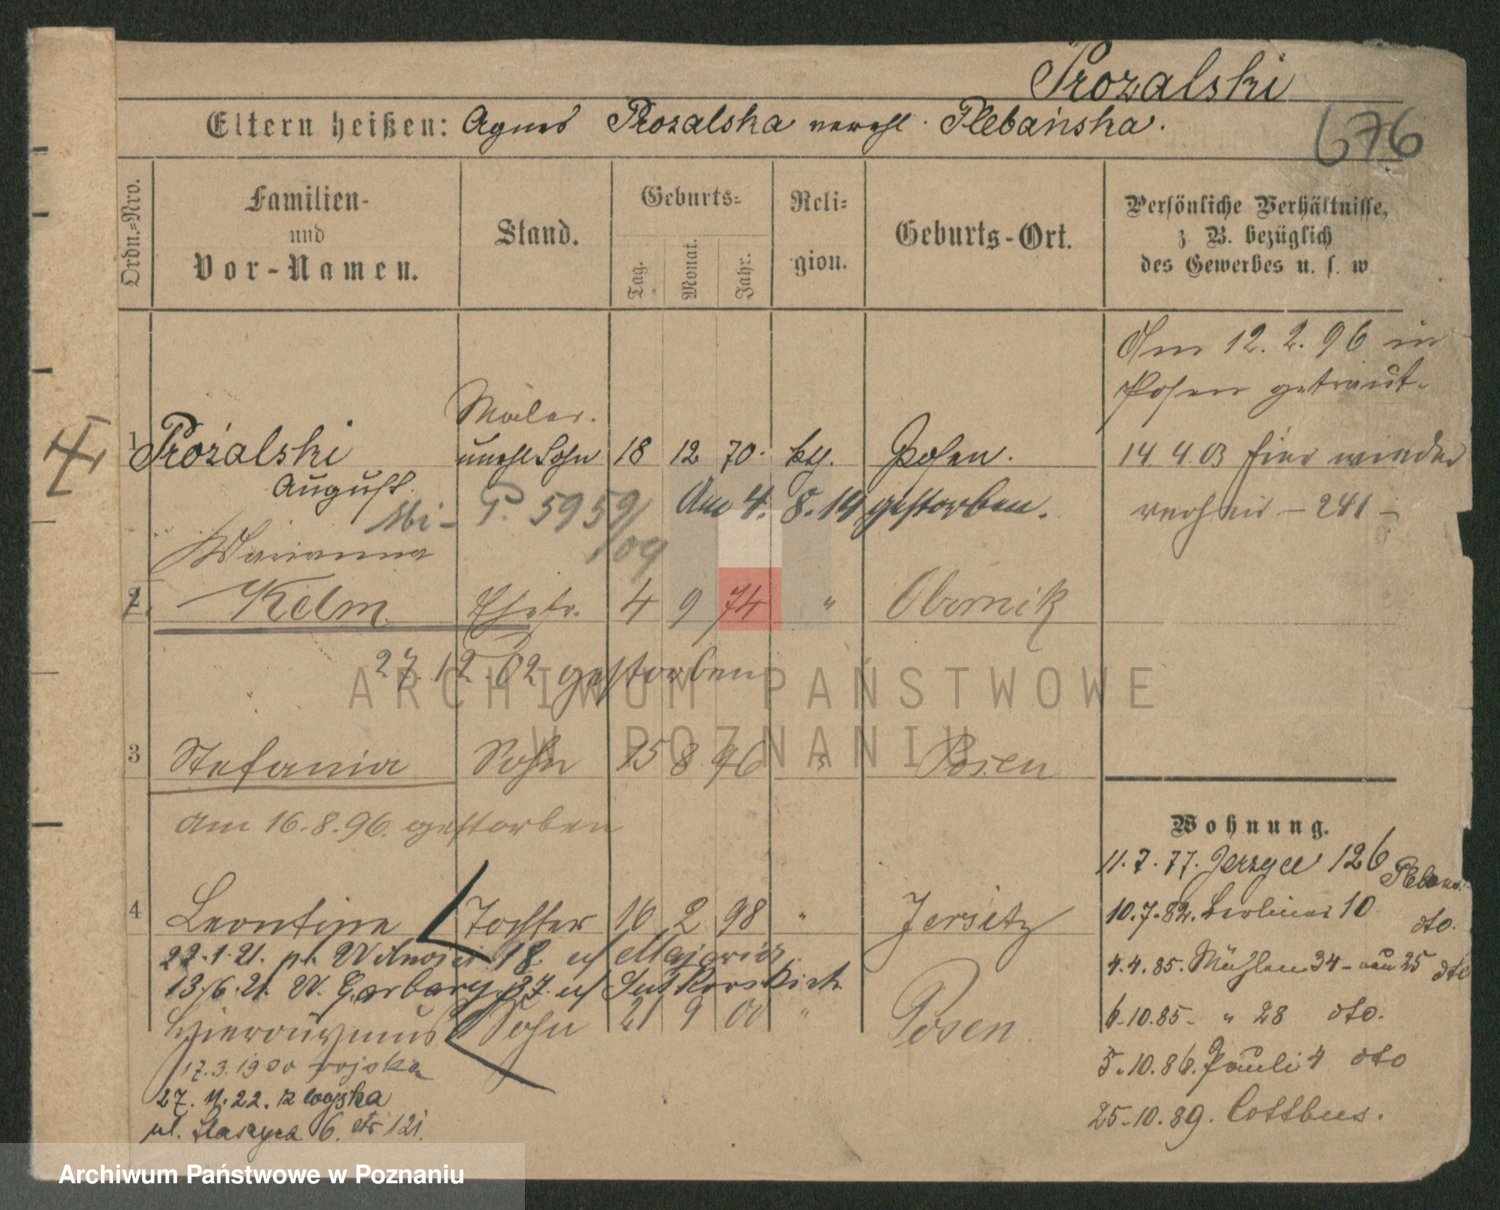 Prozalski
Eltern heißen: Agnes Prozalska verehl. Plebańska.
676
Ordn.=Nro.
Familien-
und
Vor-Namen.
Stand.
Geburts=
Tag.
Monat.
Jahr.
Reli=
gion.
Geburts-Ort.
Persönliche Verhältnisse,
z B. bezüglich
des Gewerbes u. s. w
Am 12. 2. 96 in
Posen getraut.
Maler.
1 Prozalski unehl Sohn 18 12 70. kth. Posen. 14. 4. 03 hier wieder
August. Am 4. 8. 14 gestorben. – 241 –
P. 5959/09
Marianna
2. Kelm Ehefr. 4 9 74 " Obornik
27. 12. 02 gestorben
3 Stefania Sohn 15 8 96 " Posen
Am 16. 8. 96. gestorben
Wohnung.
11. 7. 77. Jerzyce 126
4 Leontine Tochter 16 2 98 " Jersitz
10. 7. 82. Berliner 10 dto.
22. 1. 21. 18. Majowicz
4. 4. 85. Mühlen 34 25 dto
13/6. 21. W. Garbary 37. Sutkowskich
Hieronymus Sohn 21 9 00 " Posen
6. 10. 85. " 28 dto.
17. 3. 1920 wojska
5. 10. 86. Pauli 4 dto
27. 11. 22. z wojska
25. 10. 89. Cottbus.
ul. 6.
ARCHIWUM PAŃSTWOWE
W POZNANIU
Archiwum Państwowe w Poznaniu